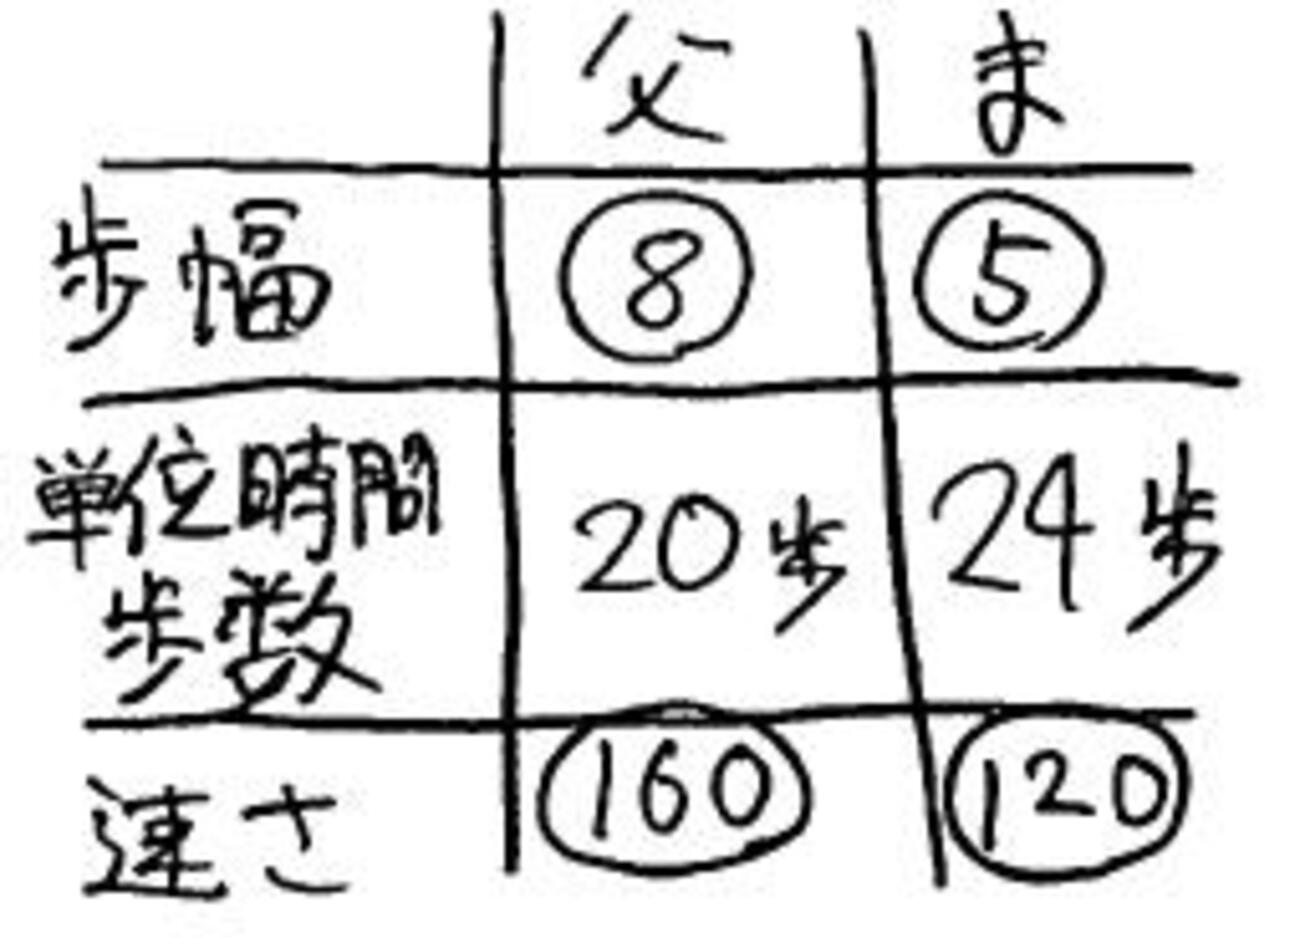 父 ま
歩幅 ⑧ ⑤
単位時間
歩数 20歩 24歩
速さ 160 120